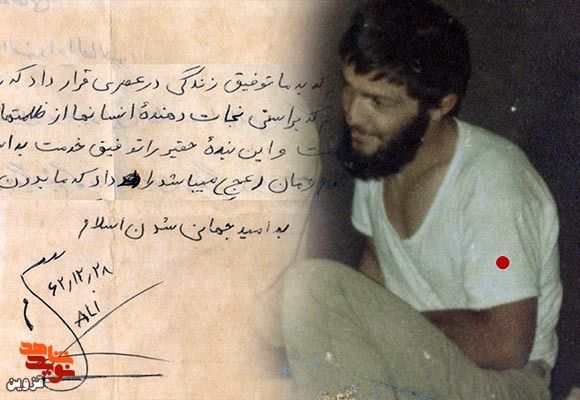 که به ما توفیق زندگی در عصری قرار داد که
که براستی نجات دهندهٔ انسانها از ظلمتها
و این بندهٔ حقیر را توفیق خدمت
میباشد را داد که ما بدون
به امید جهانی شدن اسلام
۶۲٫۱۲٫۲۸
ALI
شاهد
نوید
قزوین